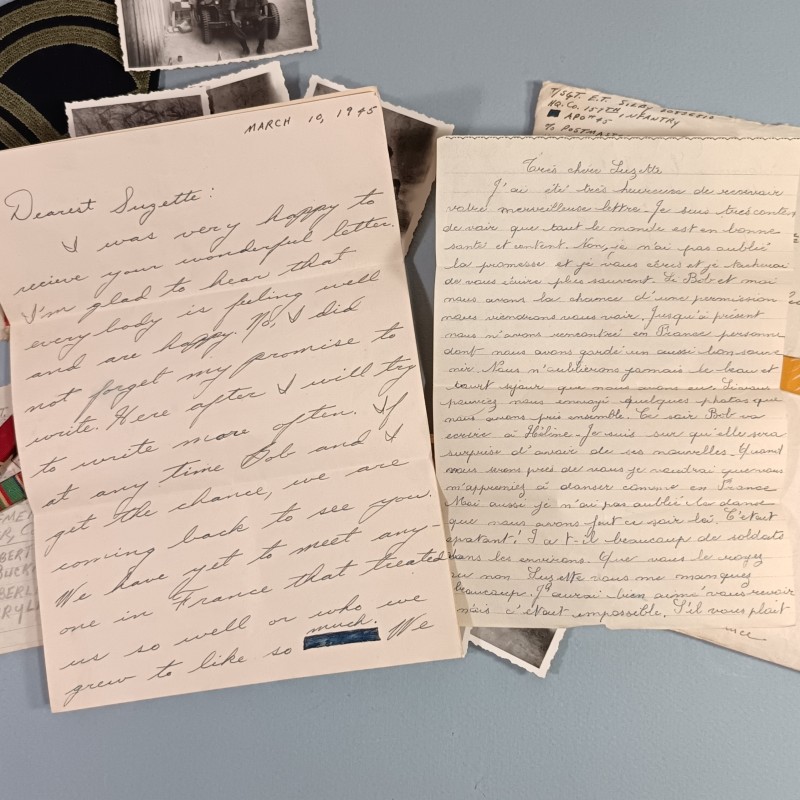 MARCH 10, 1945
Dearest Suzette:
I was very happy to
recieve your wonderful letter.
I'm glad to hear that
every body is feeling well
and are happy. No, I did
not forget my promise to
write. Here after I will try
to write more often. If
at any time Bob and I
get the chance, we are
coming back to see you.
We have yet to meet any-
one in France that treated
us so well or who we
grew to like so much. We
T/SGT. E.T.
HQ. CO. 157TH INFANTRY
APO #45
To POSTMAST
Très chère Suzette
J'ai été très heureuse de recevoir
votre merveilleuse lettre. Je suis très conten
de voir que tout le monde est en bonne
santé et content. Non, je n'ai pas oublié
la promesse et je vous écris et je tacherai
de vous écrire plus souvent. Si Bob et moi
nous avons la chance d'une permission
nous viendrons vous voir. Jusqu'à présent
nous n'avons rencontré en France personne
dont nous avons gardé un aussi bon souve
nir. Nous n'oublierons jamais le beau et
court séjour que nous avons eu. Si vous
pouviez nous envoyé quelques photos que
nous avons pris ensemble. Ce soir Bob va
écrire à Hélène. Je suis sur qu'elle sera
surprise d'avoir de ces nouvelles. Quand
nous serons près de vous je voudrai que vous
m'appreniez à danser comme en France
Moi aussi je n'ai pas oublié la danse
que nous avons fait ce soir là. C'était
épatant! Y a t-il beaucoup de soldats
dans les environs. Que vous le croyez
ou non Suzette vous me manquez
beaucoup. J'aurai bien aimé vous revoir
mais c'était impossible. S'il vous plait